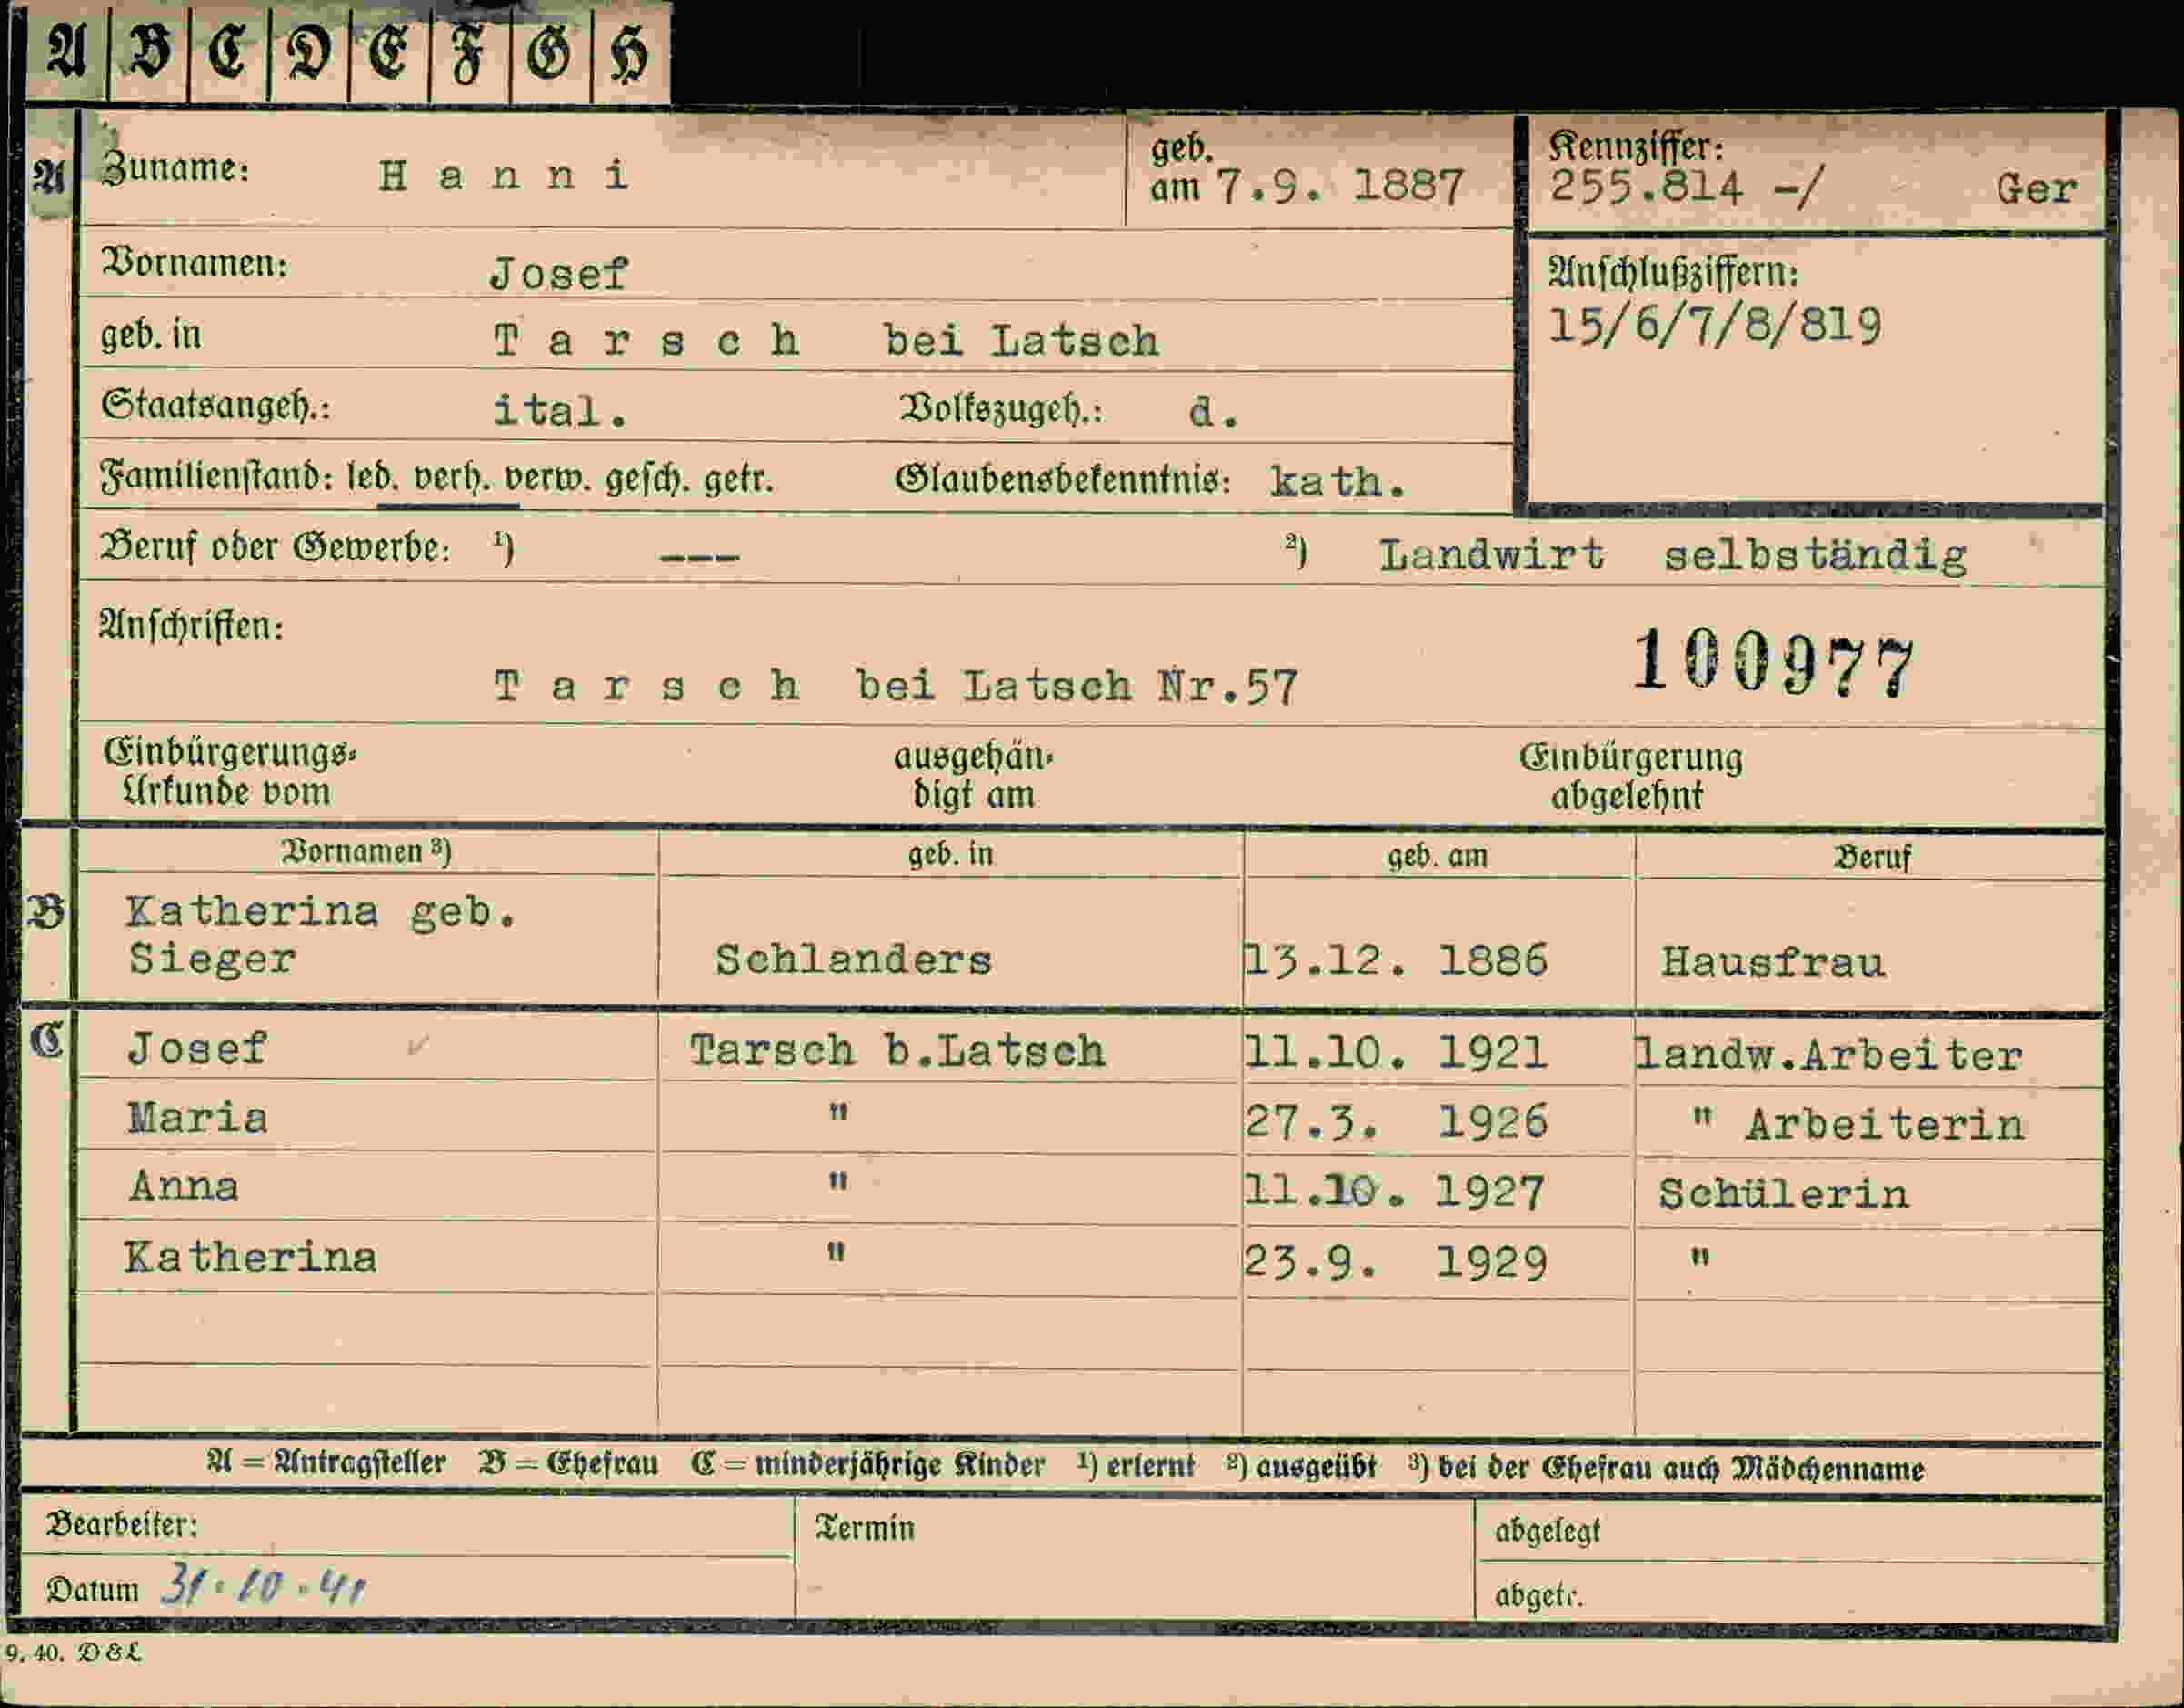 A B C D E F G H
A Zuname: Hanni geb. am 7.9. 1887 Kennziffer: 255.814 -/ Ger
Vornamen: Josef Anschlußziffern:
15/6/7/8/819
geb. in Tarsch bei Latsch
Staatsangeh.: ital. Volkszugeh.: d.
Familienstand: led. verh. verw. gesch. getr. Glaubensbekenntnis: kath.
Beruf oder Gewerbe: ¹) --- ²) Landwirt selbständig
Anschriften:
Tarsch bei Latsch Nr.57 100977
Einbürgerungs- ausgehän- Einbürgerung
Urkunde vom digt am abgelehnt
Vornamen ³) geb. in geb. am Beruf
B Katherina geb.
Sieger Schlanders 13.12. 1886 Hausfrau
C Josef Tarsch b.Latsch 11.10. 1921 landw.Arbeiter
Maria " 27.3. 1926 " Arbeiterin
Anna " 11.10. 1927 Schülerin
Katherina " 23.9. 1929 "
A = Antragsteller B = Ehefrau C = minderjährige Kinder ¹) erlernt ²) ausgeübt ³) bei der Ehefrau auch Mädchenname
Bearbeiter: Termin abgelegt
Datum 31.10.41 abgetr.
9. 40. D&L